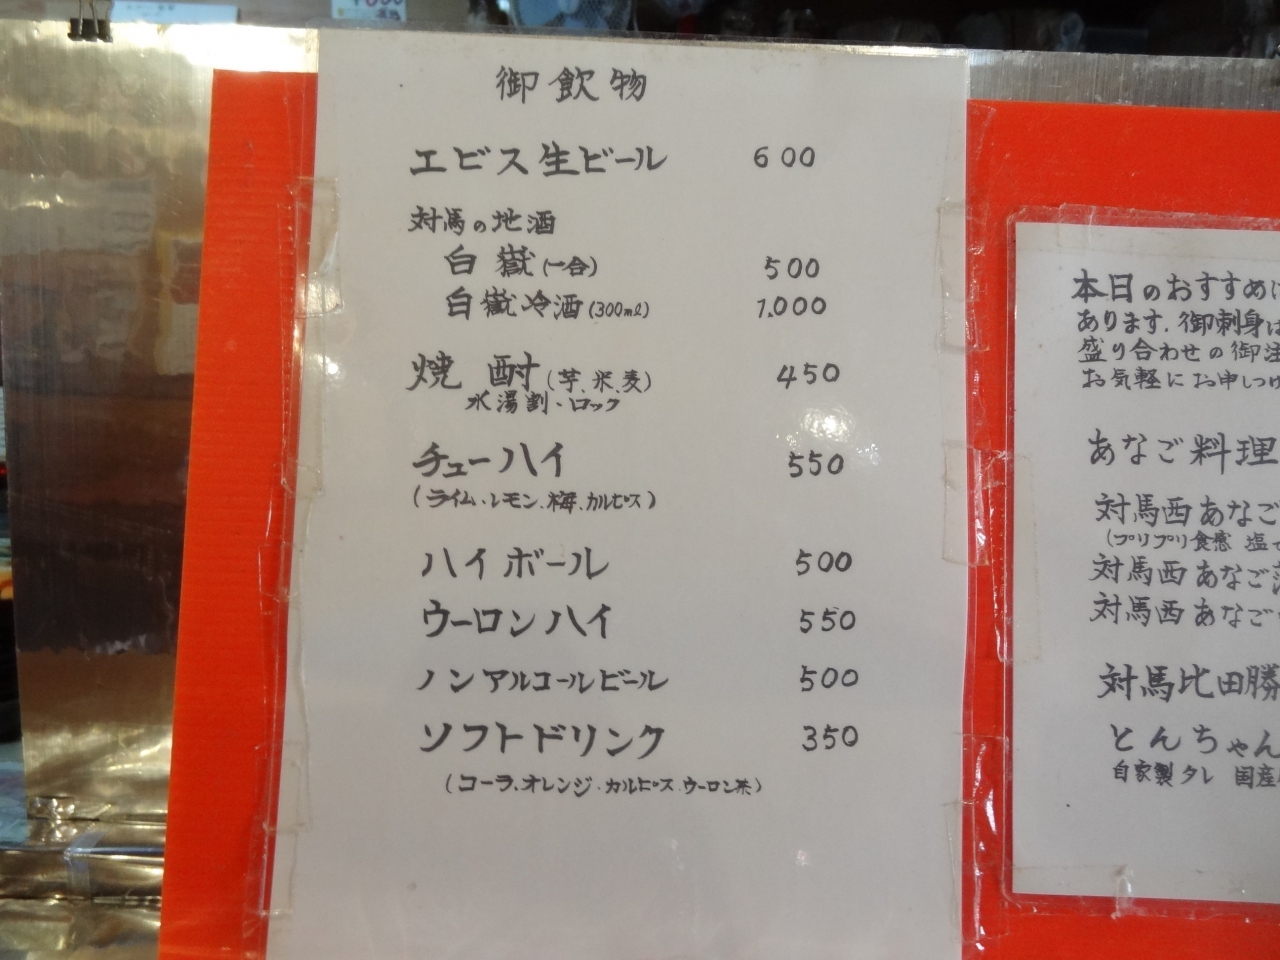 御飲物
エビス生ビール 600
対馬の地酒
白嶽(一合) 500
白嶽冷酒(300ml) 1,000
焼酎(芋、米、麦) 450
水湯割・ロック
チューハイ 550
(ライム・レモン、梅、カルピス)
ハイボール 500
ウーロンハイ 550
ノンアルコールビール 500
ソフトドリンク 350
(コーラ、オレンジ・カルピス・ウーロン茶)
本日のおすすめ
あります。御刺身は
盛り合わせの御注
お気軽にお申しつけ
あなご料理
対馬西あなご
(プリプリ食感 塩
対馬西あなご
対馬西あなご
対馬比田勝
とんちゃん
自家製タレ 国産